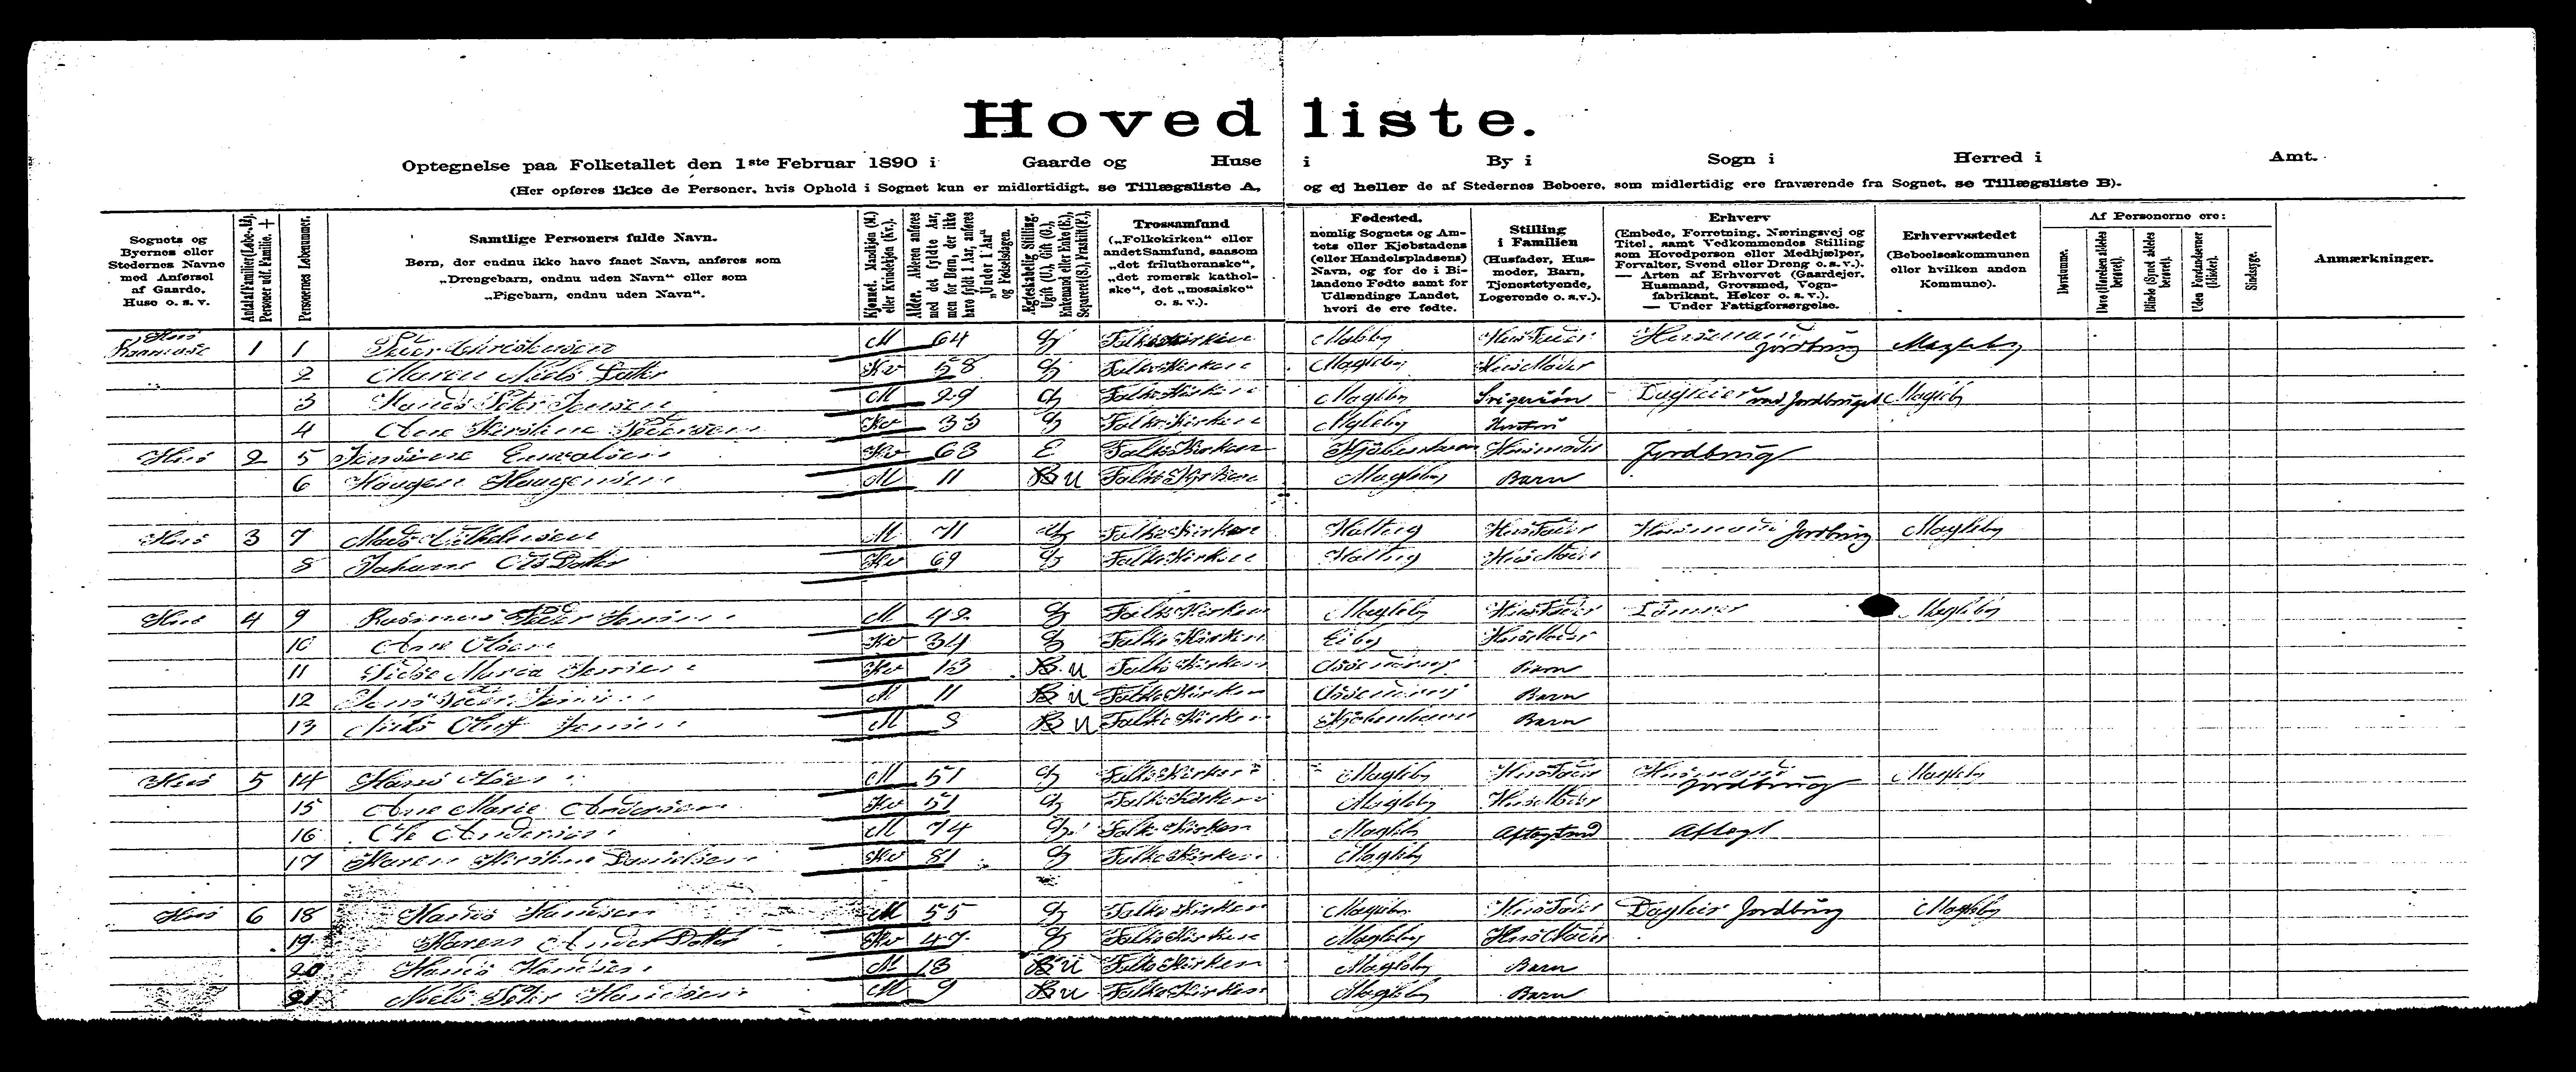 Hovedliste.
Optegnelse paa Folketallet den 1ste Februar 1890 i Gaarde og Huse i By i Sogn i Herred i Amt.
(Her opføres ikke de Personer, hvis Ophold i Sognet kun er midlertidigt, se Tillægsliste A, og ej heller de af Stedernes Beboere, som midlertidig ere fraværende fra Sognet, se Tillægsliste B).
Sognets og Byernes eller Stedernes Navne med Anførsel af Gaarde, Huse o. s. v.
Personernes Løbenummer.
Samtlige Personers fulde Navn.
Børn, der endnu ikke have faaet Navn, anføres som „Drengebarn, endnu uden Navn“ eller som „Pigebarn, endnu uden Navn“.
Kjønnet. Mandkjøn (M.) eller Kvindekjøn (Kv.).
Alder. Alderen anføres med det fyldte Aar, men for Børn, der ikke have fyldt 1 Aar, anføres „Under 1 Aar“ og Fødselsdagen.
Ægteskabelig Stilling. Ugift (U.), Gift (G.), Enkemand eller Enke (E.), Separeret (S.), Fraskilt (F.).
Trossamfund („Folkekirken“ eller andet Samfund, saasom „det frilutheranske“, „det romersk katholske“, det „mosaiske“ o. s. v.).
Fødested, nemlig Sognets og Amtets eller Kjøbstadens (eller Handelspladsens) Navn, og for de i Bilandene Fødte samt for Udlændinge Landet, hvori de ere fødte.
Stilling i Familien (Husfader, Husmoder, Barn, Tjenestetyende, Logerende o. s. v.).
Erhverv (Embede, Forretning, Næringsvej og Titel, samt Vedkommendes Stilling som Hovedperson eller Medhjælper, Forvalter, Svend eller Dreng o. s. v.). — Arten af Erhvervet (Gaardejer, Husmand, Grovsmed, Vognfabrikant, Høker o. s. v.). — Under Fattigforsørgelse.
Erhvervsstedet (Beboelseskommunen eller hvilken anden Kommune).
Af Personerne ere:
Døvstumme.
Døve (Hørelsen aldeles berøvet).
Blinde (Synet aldeles berøvet).
Uden Forstandsevner (Idioter).
Sindssyge.
Anmærkninger.
Huus 1 1 Peter Christensen M 64 G Folkekirken Husfader Huusmand Jordbrug Magleby
2 Maren Niels Datter Kv 58 G Folkekirken Magleby Husmoder
3 Hans Peter Jensen M 29 G Folkekirken Magleby Svigersøn Dagleier ved Jordbruget Magleby
4 Ane Kirstine Pedersen Kv 33 G Folkekirken Magleby Hustru
Huus 2 5 Kv 63 E Folkekirken Kjøbenhavn Husmoder Jordbrug
6 M 11 U Folkekirken Magleby Barn
Huus 3 7 Mads M 71 G Folkekirken Husfader Huusmand Jordbrug Magleby
8 Johanne Ols Datter Kv 69 G Folkekirken Husmoder
Huus 4 9 Rasmus Peder Jensen M 42 G Folkekirken Magleby Husfader Tømrer Magleby
10 Ane Olsen Kv 34 G Folkekirken Eiby Husmoder
11 Maria Jensen Kv 13 U Folkekirken Barn
12 Jens Peder Jensen M 11 U Folkekirken Barn
13 Niels Oluf Jensen M 8 U Folkekirken Kjøbenhavn Barn
Huus 5 14 Hans Olsen M 51 G Folkekirken Magleby Husfader Huusmand Jordbrug Magleby
15 Ane Marie Andersen Kv 51 G Folkekirken Magleby Husmoder
16 Ole Andersen M 74 G Folkekirken Magleby Aftægtsmd Aftægt
17 Karen Kirstine Danielsen Kv 81 G Folkekirken Magleby
Huus 6 18 Hans Hansen M 55 G Folkekirken Magleby Husfader Dagleier Jordbrug Magleby
19 Karen Anders Datter Kv 47 G Folkekirken Magleby Husmoder
20 Hans Hansen M 13 U Folkekirken Magleby Barn
21 Niels Peter Hansen M 9 U Folkekirken Magleby Barn